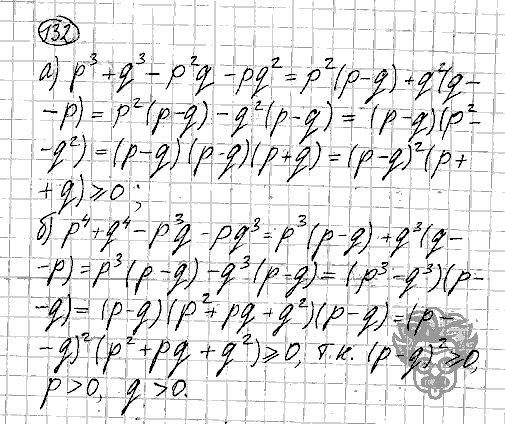 132
а) p³ + q³ - p²q - pq² = p²(p-q) + q²(q-
-p) = p²(p-q) - q²(p-q) = (p-q)(p²-
-q²) = (p-q)(p-q)(p+q) = (p-q)²(p+
+q) ⩾ 0;
б) p⁴ + q⁴ - p³q - pq³ = p³(p-q) + q³(q-
-p) = p³(p-q) - q³(p-q) = (p³-q³)(p-
-q) = (p-q)(p²+pq+q²)(p-q) = (p-
-q)²(p²+pq+q²) ⩾ 0, т.к. (p-q)² ⩾ 0,
p > 0, q > 0.